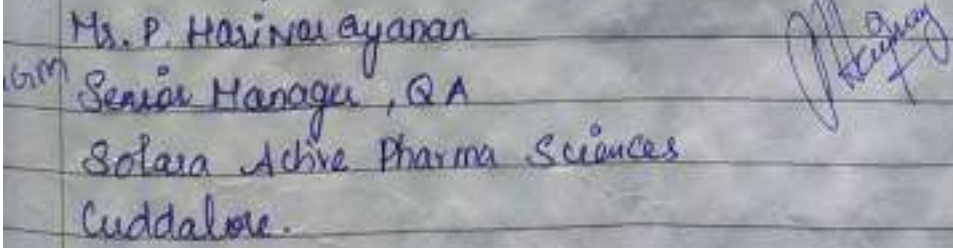 Mr. P. Harinarayanan
GM Senior Manager, QA
Solara Active Pharma Sciences
Cuddalore.